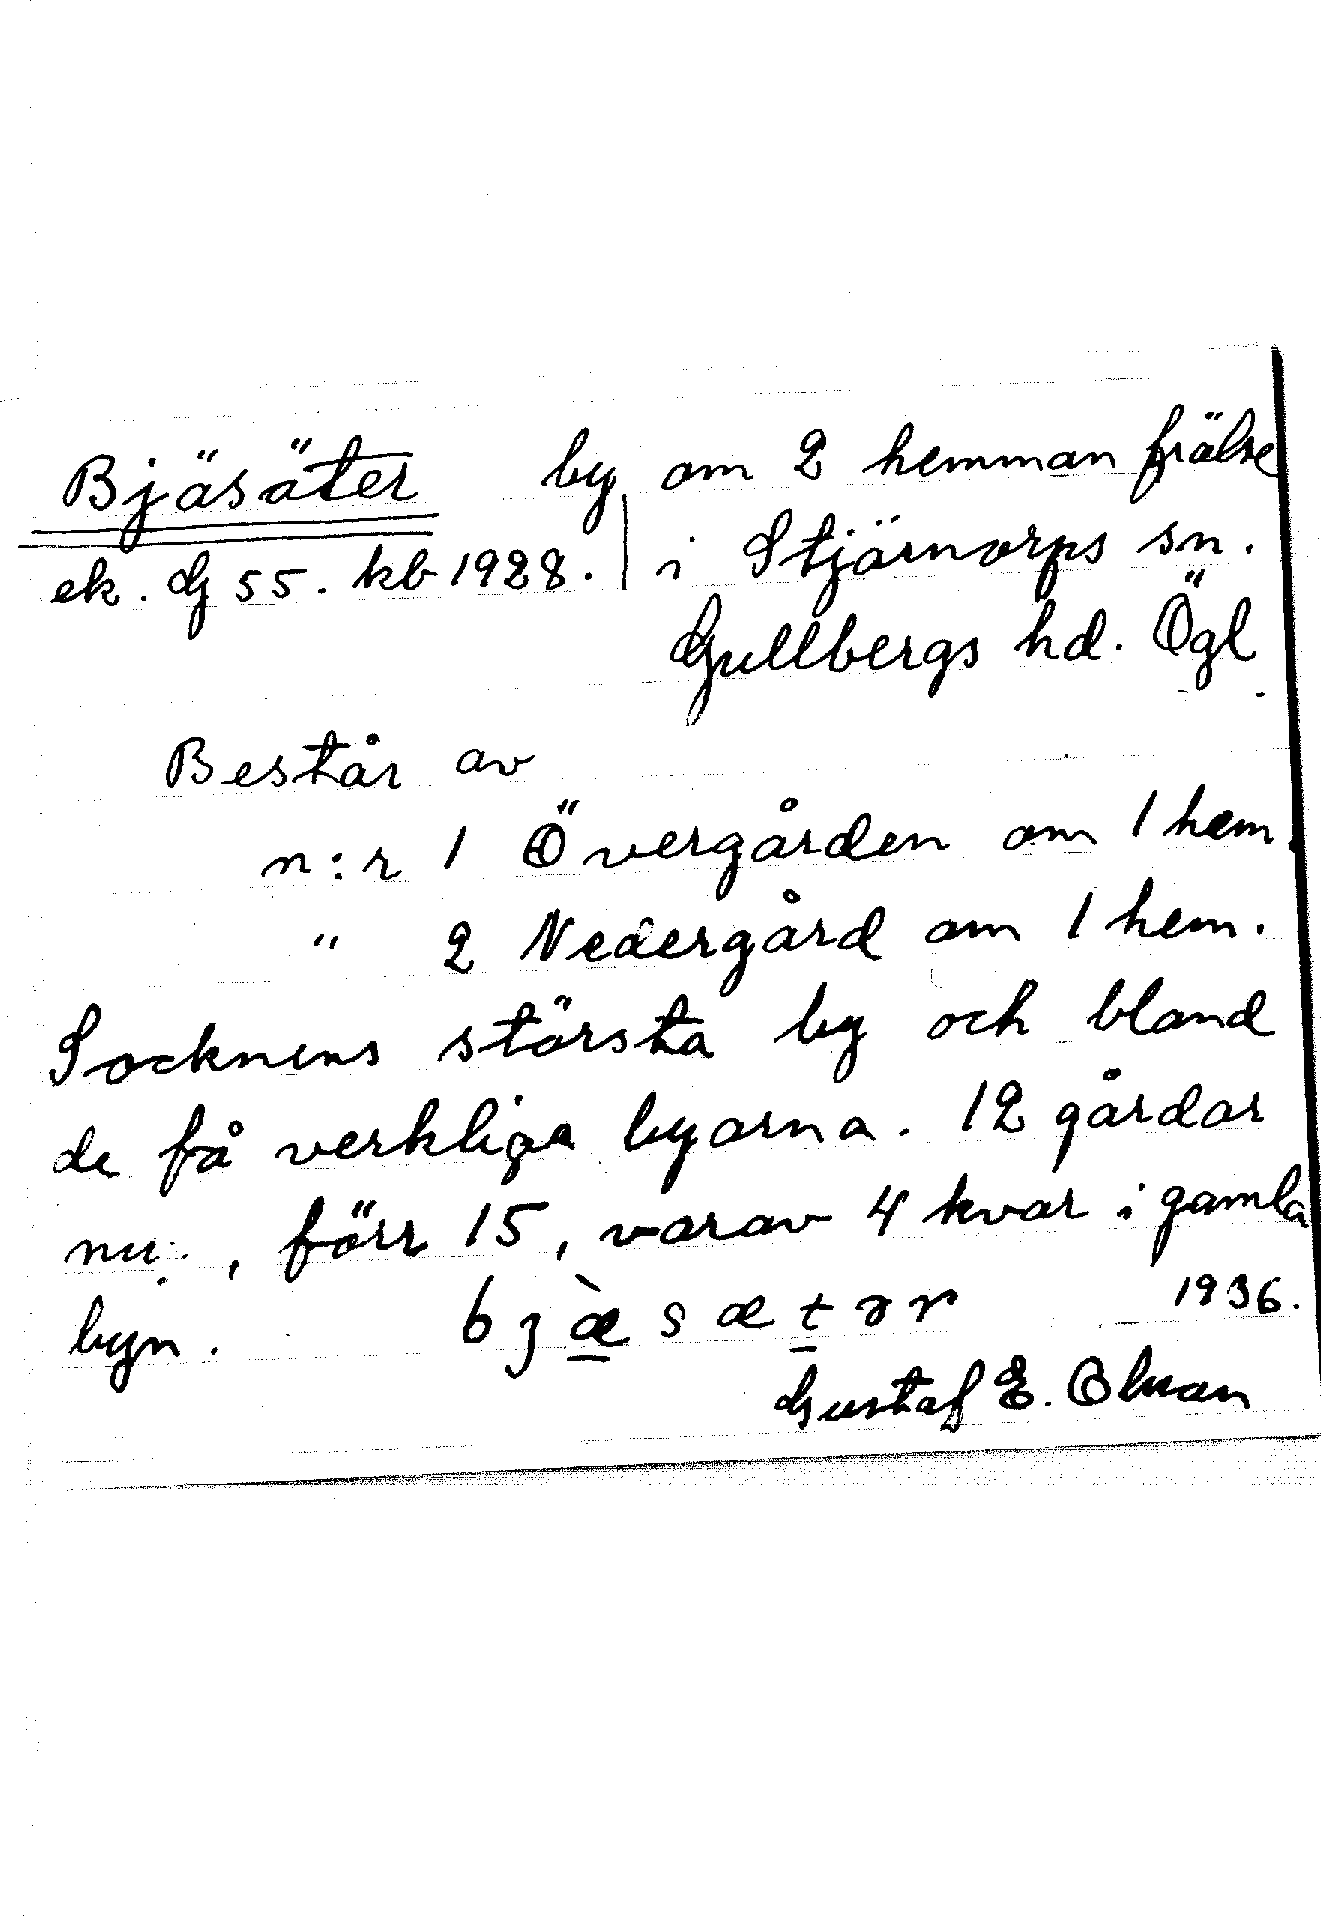 Bjäsäter by om 2 hemman frälse
ek. dj 55. kb 1928. i Stjärnorps sn.
Gullbergs hd. Ögl
Består av
n:r 1 Övergården om 1 hem.
" 2 Nedergård om 1 hem.
Socknens största by och bland
de få verkliga byarna. 12 gårdar
nu, förr 15, varav 4 kvar i gamla
byn. bjæ̀sætər 1936.
Gustaf E.